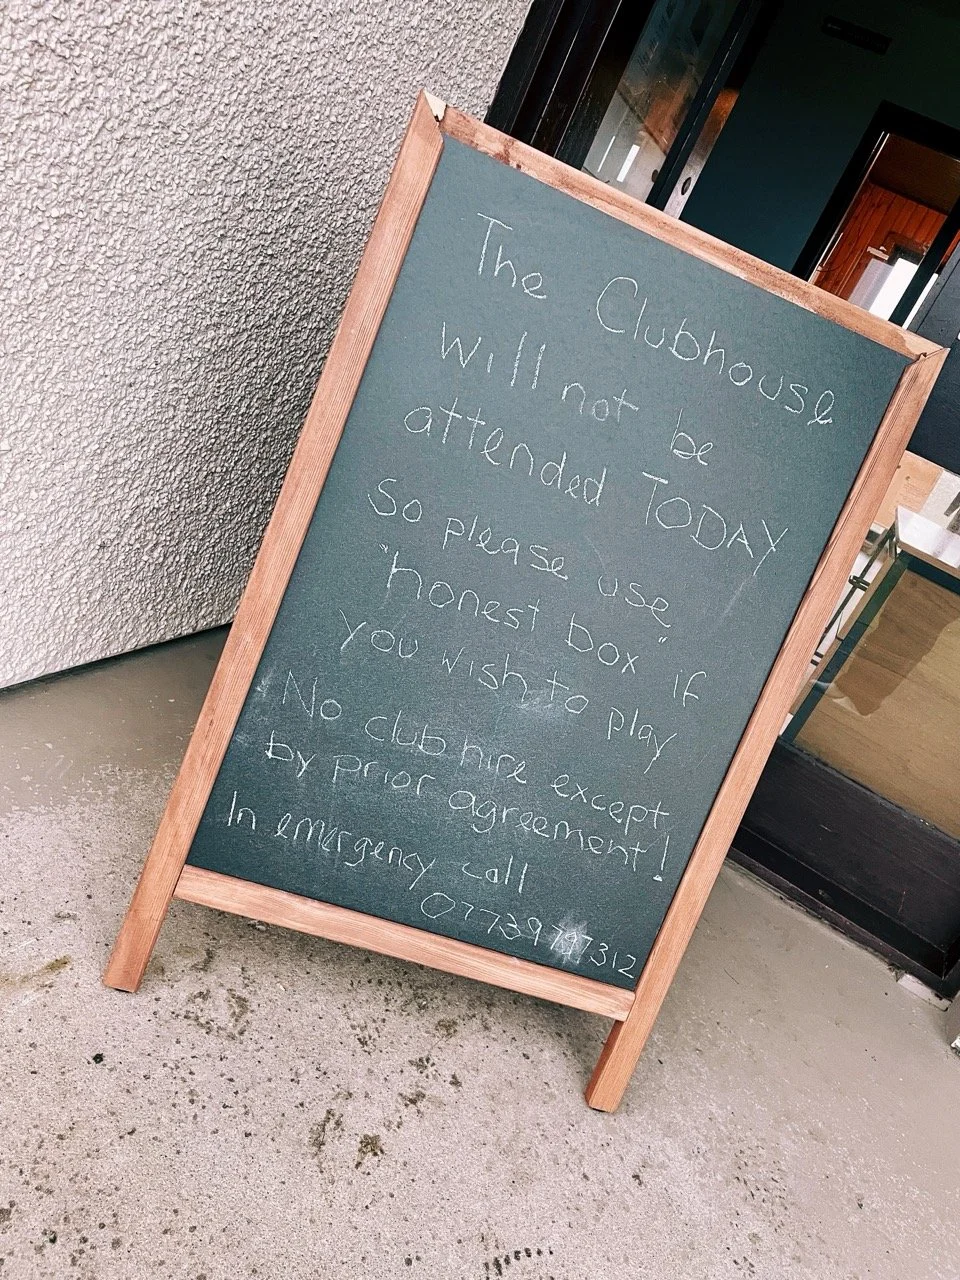 The Clubhouse
Will not be
attended TODAY
So please use
"honest box" if
you wish to play
No club hire except
by prior agreement!
In emergency call